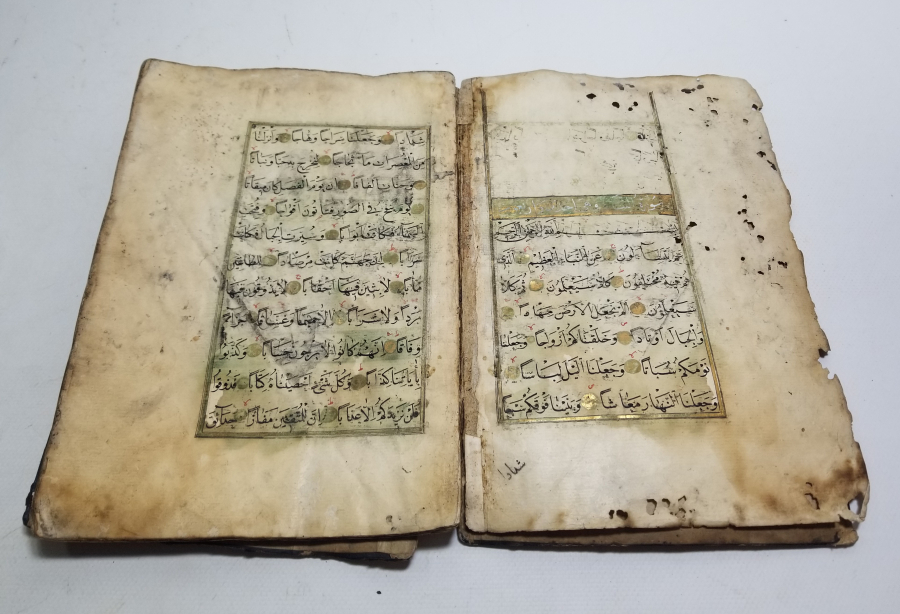 عم يتساءلون عن النباء العظيم الذى
هم فيه مختلفون كلا سيعلمون ثم كلا
سيعلمون الم نجعل الارض مهادا
والجبال اوتادا وخلقناكم ازواجا وجعلنا
نومكم سباتا وجعلنا اليل لباسا
وجعلنا النهار معاشا وبنينا فوقكم سبعا
شدادا
شدادا وجعلنا سراجا وهاجا وانزلنا
من المعصرات ماء ثجاجا لنخرج به حبا ونباتا
وجنات الفافا ان يوم الفصل كان ميقاتا
يوم ينفخ فى الصور فتاتون افواجا وفتحت
السماء فكانت ابوابا وسيرت الجبال فكانت
سرابا ان جهنم كانت مرصادا للطاغين
مابا لابثين فيها احقابا لا يذوقون فيها
بردا ولا شرابا الا حميما وغساقا جزاء
وفاقا انهم كانوا لا يرجون حسابا وكذبوا
باياتنا كذابا وكل شئ احصيناه كتابا فذوقوا
فلن نزيدكم الا عذابا ان للمتقين مفازا حدائق